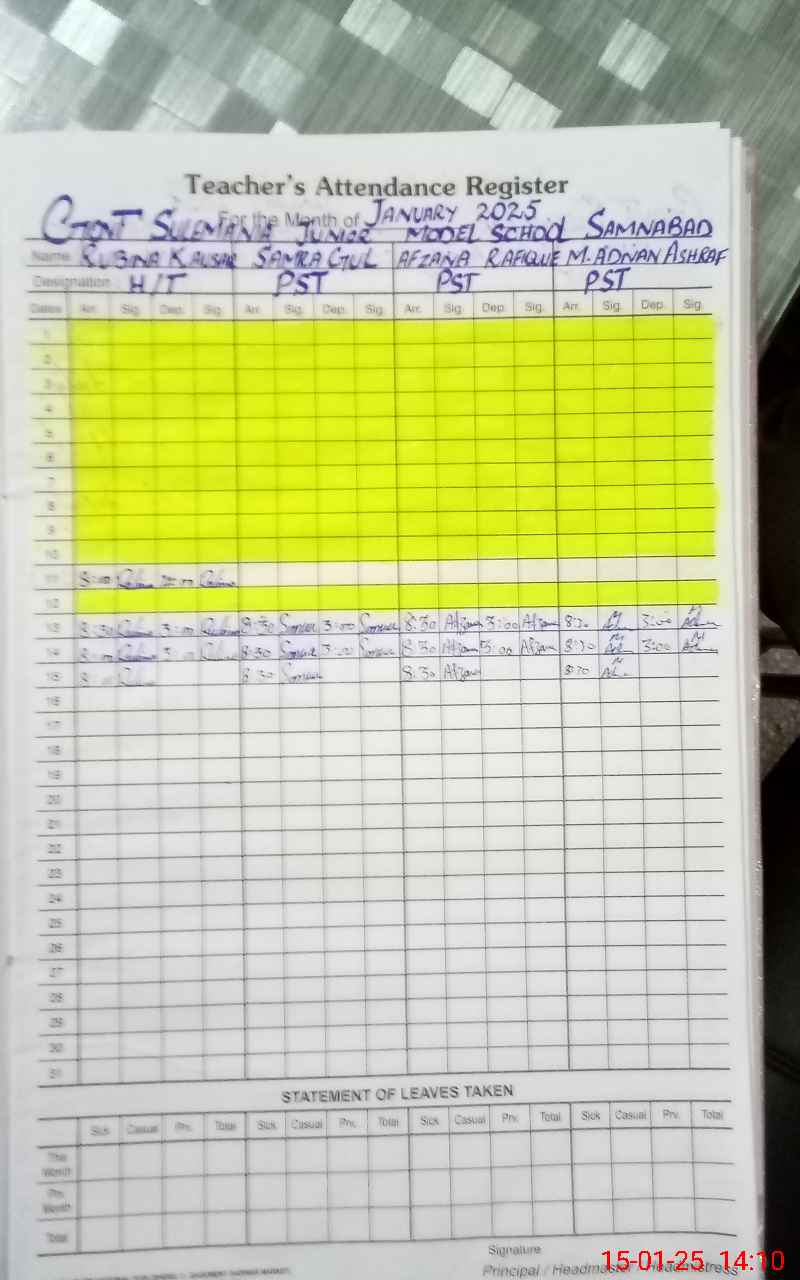 Teacher's Attendance Register
For the Month of JANUARY 2025
GOVT SULEMANIA JUNIOR MODEL SCHOOL SAMNABAD
Name RUBINA KAUSAR SAMRA GUL AFZANA RAFIQUE M. ADNAN ASHRAF
Designation H/T PST PST PST
Dates Arr. Sig. Dep. Sig. Arr. Sig. Dep. Sig. Arr. Sig. Dep. Sig. Arr. Sig. Dep. Sig.
1
2
3
4
5
6
7
8
9
10
11
12
13 8:30 3:00 8:30 3:00 8:30 Afzana 3:00 Afzana 3:00
14 8:30 3:00 8:30 Afzana 3:00 Afzana 3:00
15 8:30 8:30 Afzana
16
17
18
19
20
21
22
23
24
25
26
27
28
29
30
31
STATEMENT OF LEAVES TAKEN
Sick Casual Prv. Total Sick Casual Prv. Total Sick Casual Prv. Total Sick Casual Prv. Total
This Month
Prv. Month
Total
Signature
Principal / Headmaster / Headmistress
15-01-25 14:10